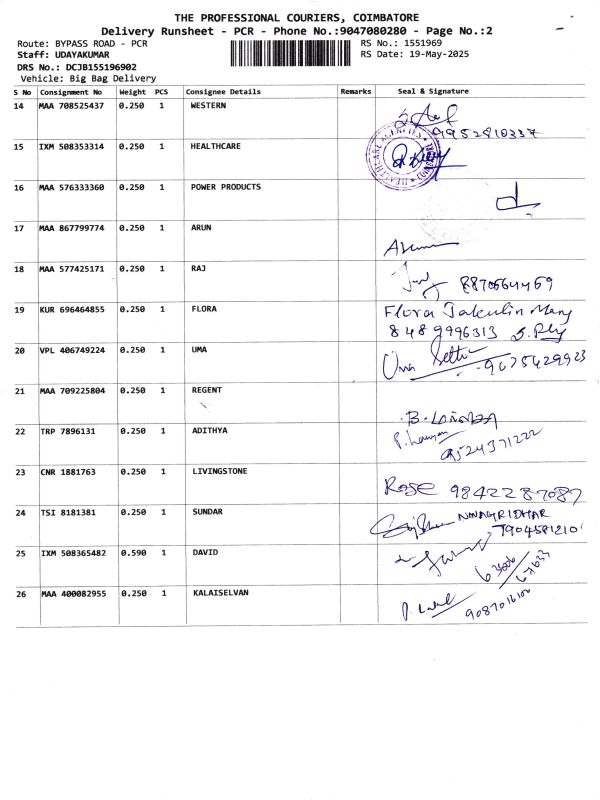 THE PROFESSIONAL COURIERS, COIMBATORE
Delivery Runsheet - PCR - Phone No.:9047080280 - Page No.:2
Route: BYPASS ROAD - PCR
RS No.: 1551969
Staff: UDAYAKUMAR
RS Date: 19-May-2025
DRS No.: DCJB155196902
Vehicle: Big Bag Delivery
S No Consignment No Weight PCS Consignee Details Remarks Seal & Signature
14 MAA 708525437 0.250 1 WESTERN
9952810337
15 IXM 508353314 0.250 1 HEALTHCARE
HEALTHCARE AGENCIES
16 MAA 576333360 0.250 1 POWER PRODUCTS
17 MAA 867799774 0.250 1 ARUN
18 MAA 577425171 0.250 1 RAJ
8870564459
19 KUR 696464855 0.250 1 FLORA Flora Jakulin Mary
8489996313
20 VPL 406749224 0.250 1 UMA
9675429923
21 MAA 709225804 0.250 1 REGENT
22 TRP 7896131 0.250 1 ADITHYA
9524371222
23 CNR 1881763 0.250 1 LIVINGSTONE
Rose 9842287087
24 TSI 8181381 0.250 1 SUNDAR
7904581210
25 IXM 508365482 0.590 1 DAVID
26 MAA 400082955 0.250 1 KALAISELVAN
9087016100